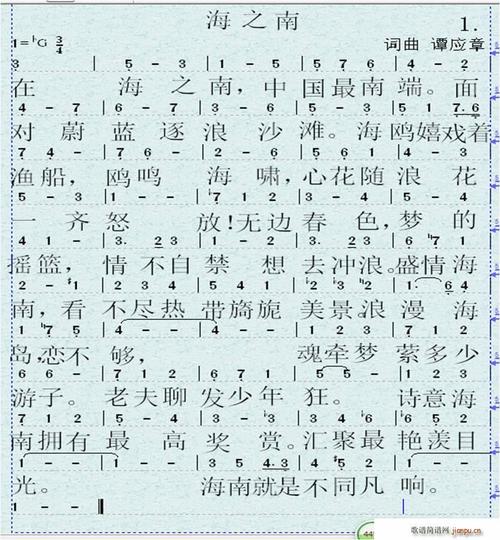 海之南 1.
1=♭G 3/4 词曲 谭应章
3 | 5 - 3 | 1 - 5 | 5 7 6 | 4 - 2
在 海 之 南，中 国 最 南 端。面
4 - 7 | 6 - 7 | 3 - 6 | 5 - 3 | 5 1 7.6
对 蔚 蓝 逐 浪 沙 滩。海 鸥 嬉 戏 着
7 4 - | 7 6 - | 2 - 6 | 5 6 1 | 4 - 3
渔 船，鸥 鸣 海 啸，心 花 随 浪 花
5 - 3 | 1 - - | ♭7 1 2 | 3 - 4 | 5 - 4
一 齐 怒 放！无 边 春 色，梦 的
4 1 - | 3. 2 3 | 1 - 2 | 3. 2 3 | 6 ♭7 1
摇 篮，情 不 自 禁 想 去 冲 浪。盛 情 海
南，看 不 尽 热 带 旖 旎 美 景。浪 漫 海
岛，恋 不 够， 魂 牵 梦 萦 多 少
6 6 - | 7 1 2 | 6 7 1 | 5 5 - | 1 2 3
游 子。老 夫 聊 发 少 年 狂。 诗 意 海
南 拥 有 最 高 奖 赏。汇 聚 最 艳 羡 目
1 - - | 1 - - | 3 5 4.3 | 4 5 2 | 1 - -
光。 海 南 就 是 不 同 凡 响。
1 - -
歌谱简谱网
jianpu.cn